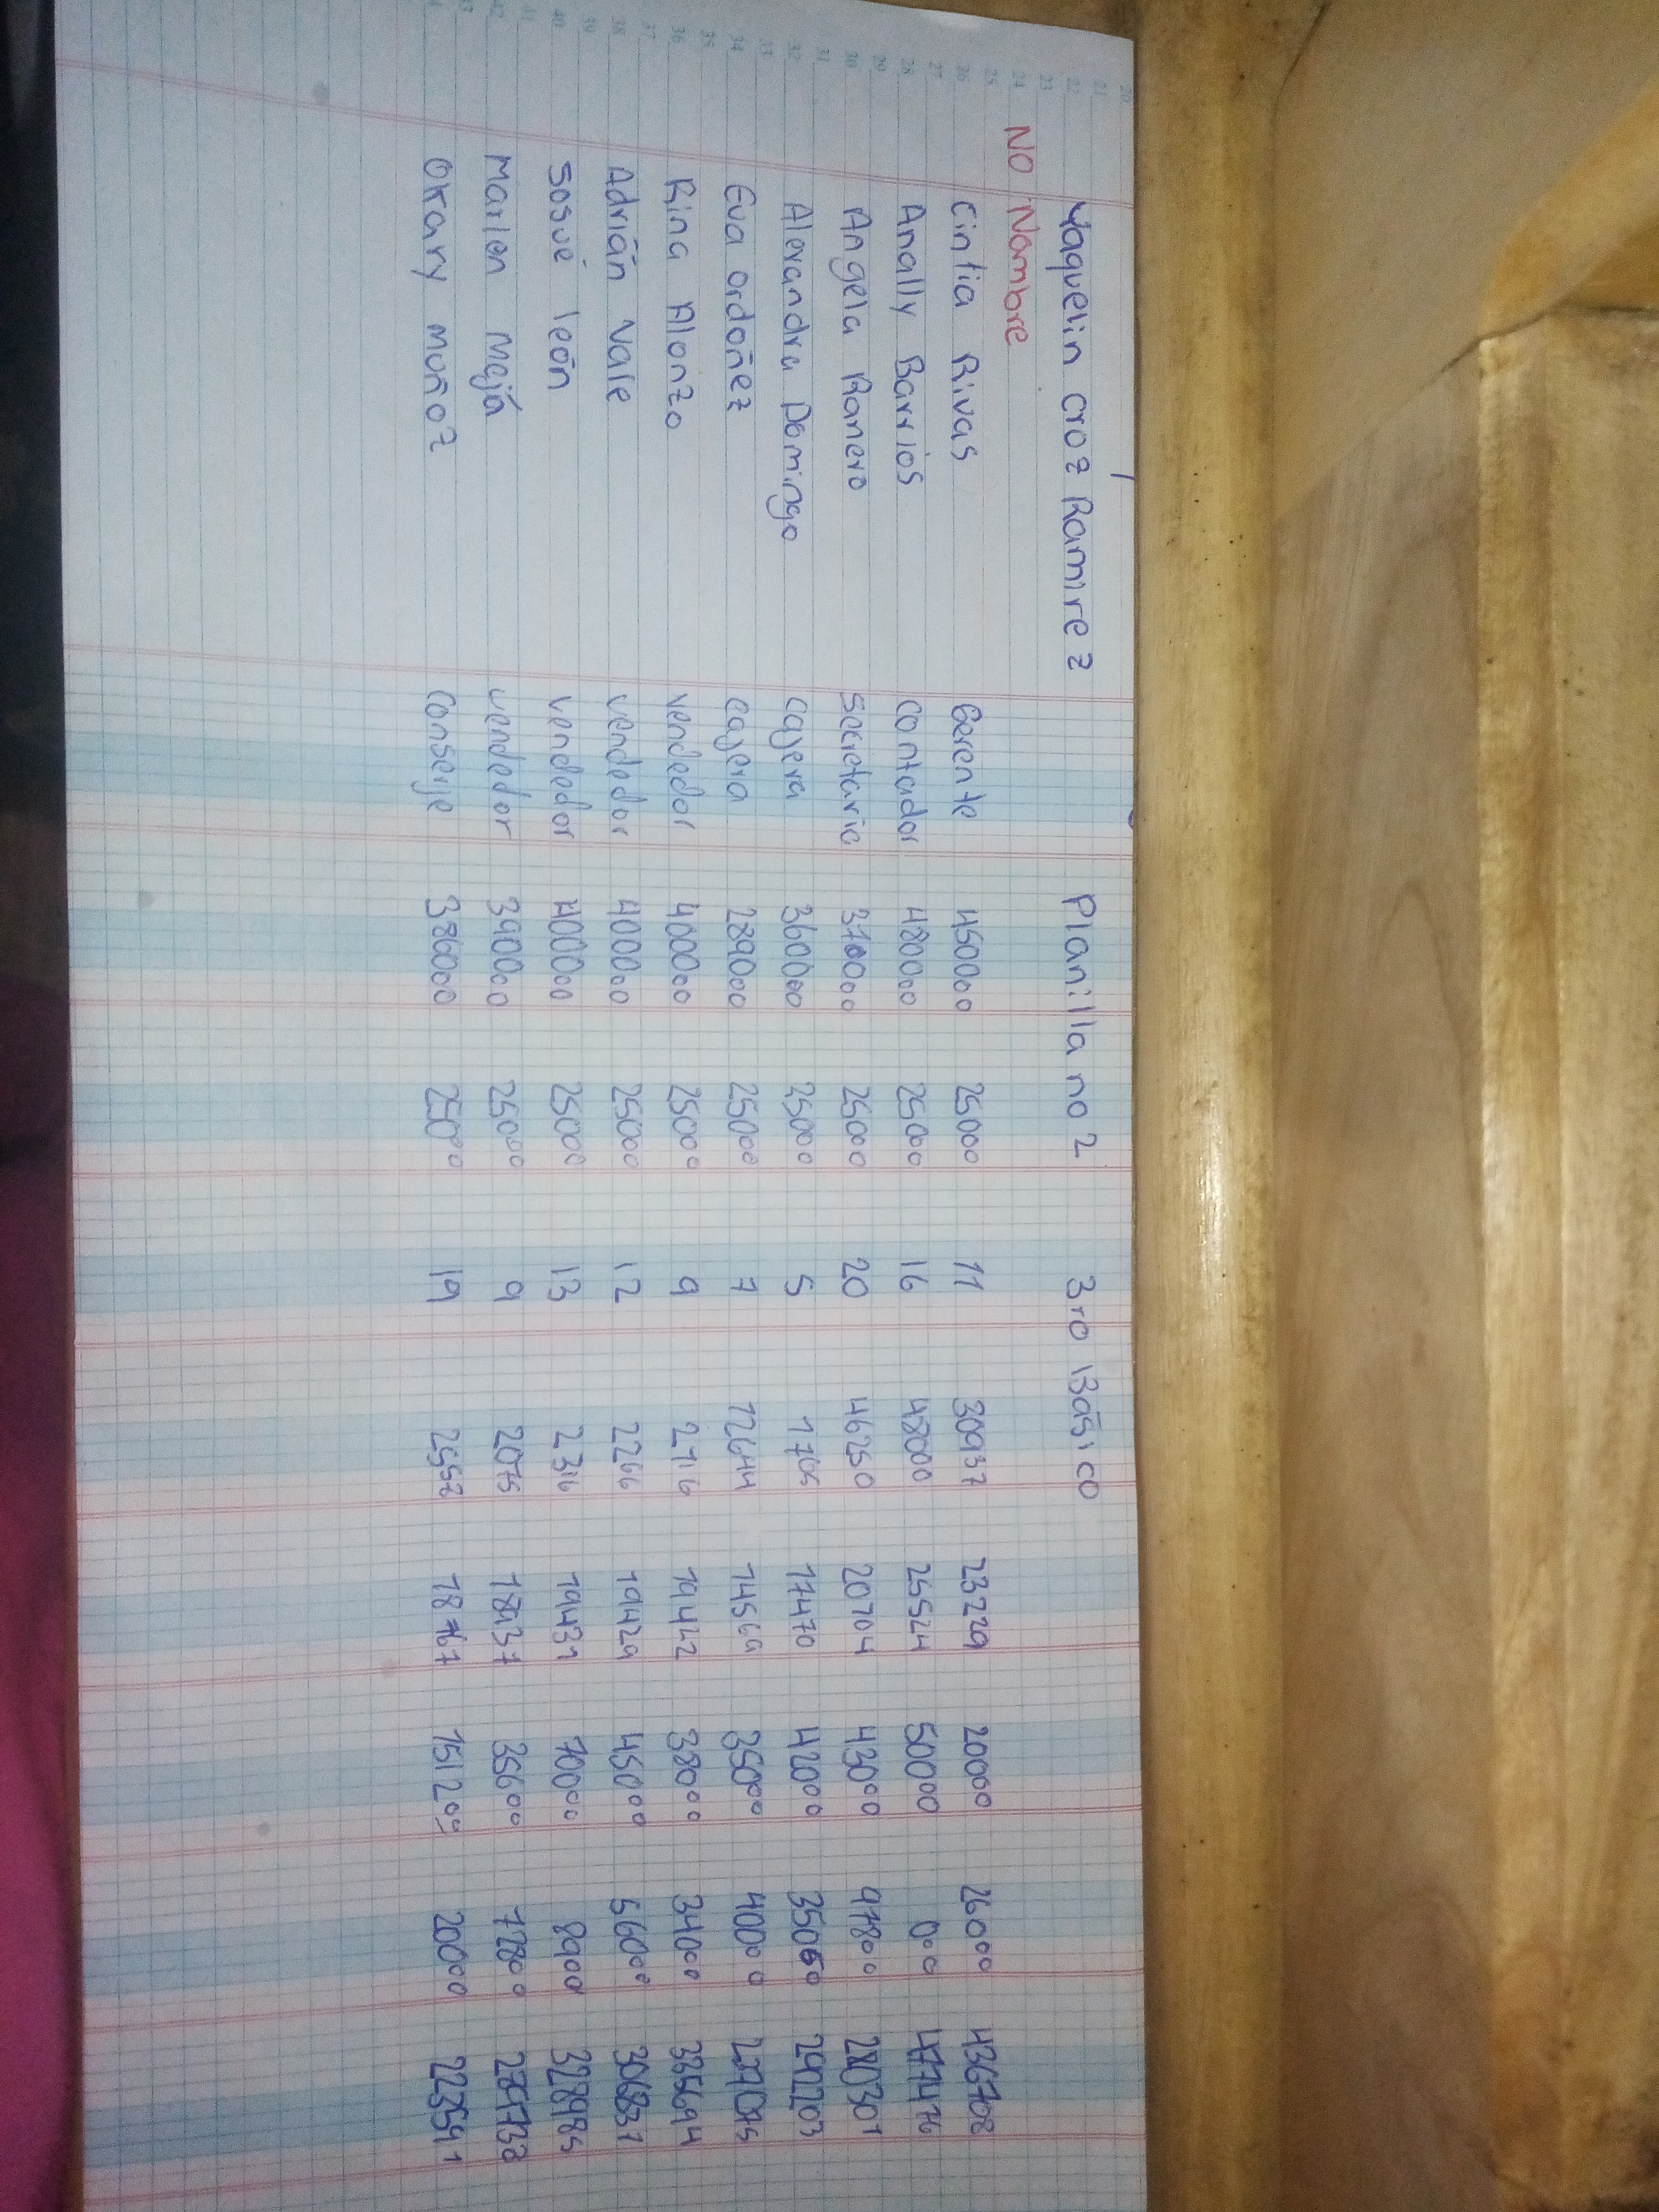 Yaquelin croz Ramirez Planilla no 2 3ro Básico
NO Nombre
Cintia Rivas Gerente 450000 25000 11 30937 23229 20000 26000 436708
Anally Barrios contador 480000 25000 16 48000 25524 50000 000 477476
Angela Ranero Secretaria 370000 25000 20 46250 20704 43000 97800 280301
Alexandra Domingo cajera 360000 25000 5 17470 42000 35000 290203
Eva ordoñez cajera 289000 25000 7 12644 14569 35000 40000
Rina Alonzo vendedor 400000 25000 9 2716 19442 38000 34000 335694
Adrián Vale vendedor 400000 25000 12 2266 19429 45000 56000 306837
Sosué león vendedor 400000 25000 13 2316 19431 70000 8900 328985
Marlen Mejá vendedor 390000 25000 9 2075 18937 35600 77800
Okary muñoz Conserje 386000 25000 19 2557 18767 151200 20000 223591